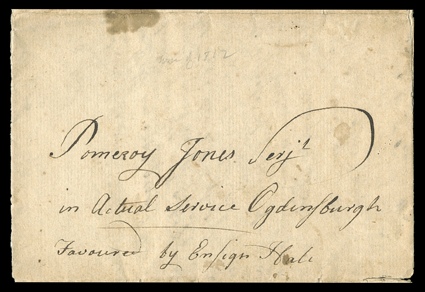 War of 1812
Pomeroy Jones Serjt
in Actual Service Ogdinsburgh
Favoured by Ensign Hale